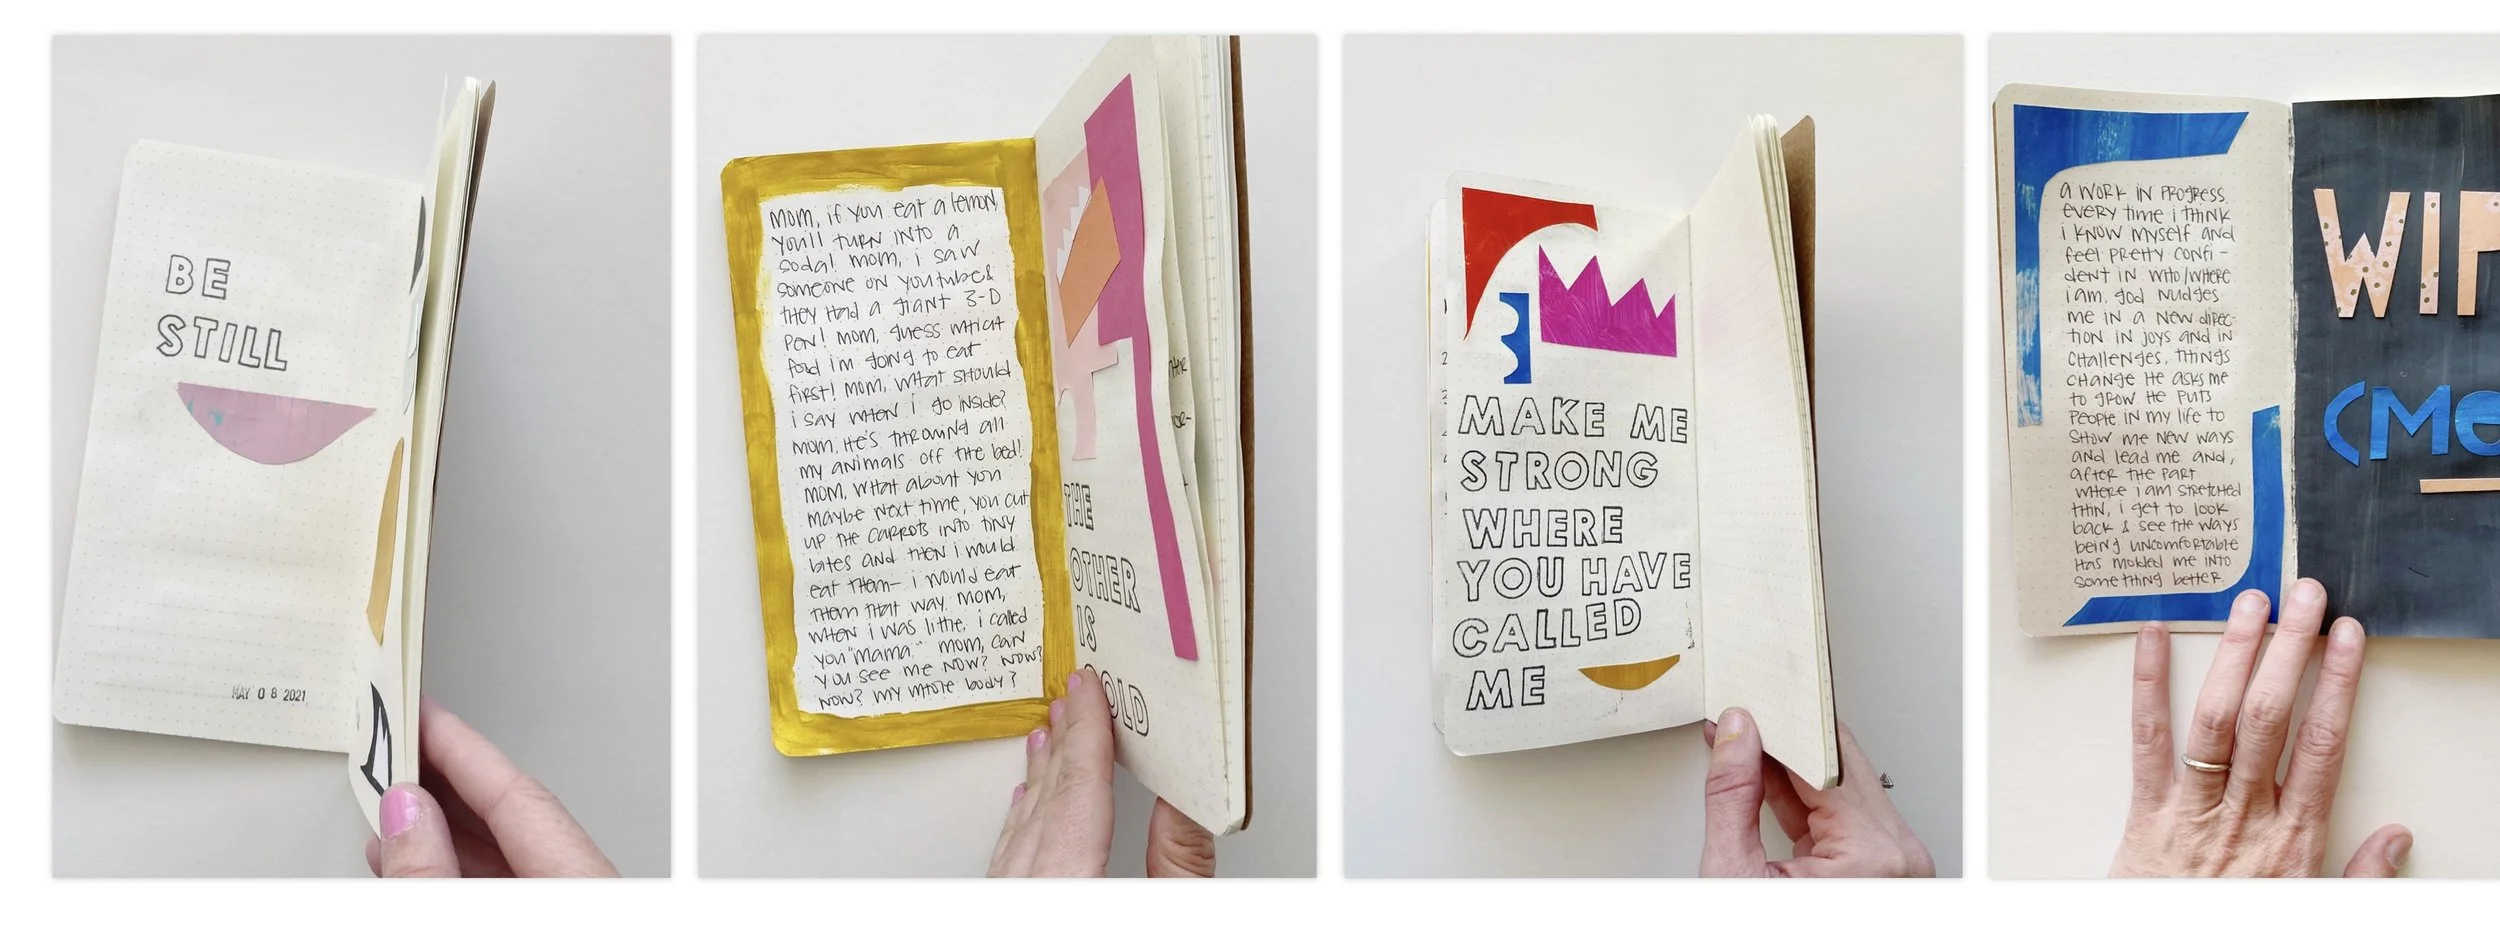 BE
STILL
MAY 08 2021
mom, if you eat a lemon,
you'll turn into a
soda! mom, i saw
someone on youtube &
they had a giant 3-D
pen! mom, guess which
food i'm going to eat
first! mom, what should
i say when i go inside?
mom, he's throwing all
my animals off the bed!
mom, what about you
maybe next time, you cut
up the carrots into tiny
bites and then i would
eat them- i would eat
them that way. mom,
when i was little, i called
you "mama." mom, can
you see me now? now?
now? my whole body?
THE
OTHER
IS
OLD
MAKE ME
STRONG
WHERE
YOU HAVE
CALLED
ME
a work in progress
every time i think
i know myself and
feel pretty confi-
dent in who/where
i am, god nudges
me in a new direc-
tion in joys and in
challenges. things
change. He asks me
to grow. He puts
people in my life to
show me new ways
and lead me and,
after the part
where i am stretched
thin, i get to look
back & see the ways
being uncomfortable
has molded me into
something better.
WIP
(MO